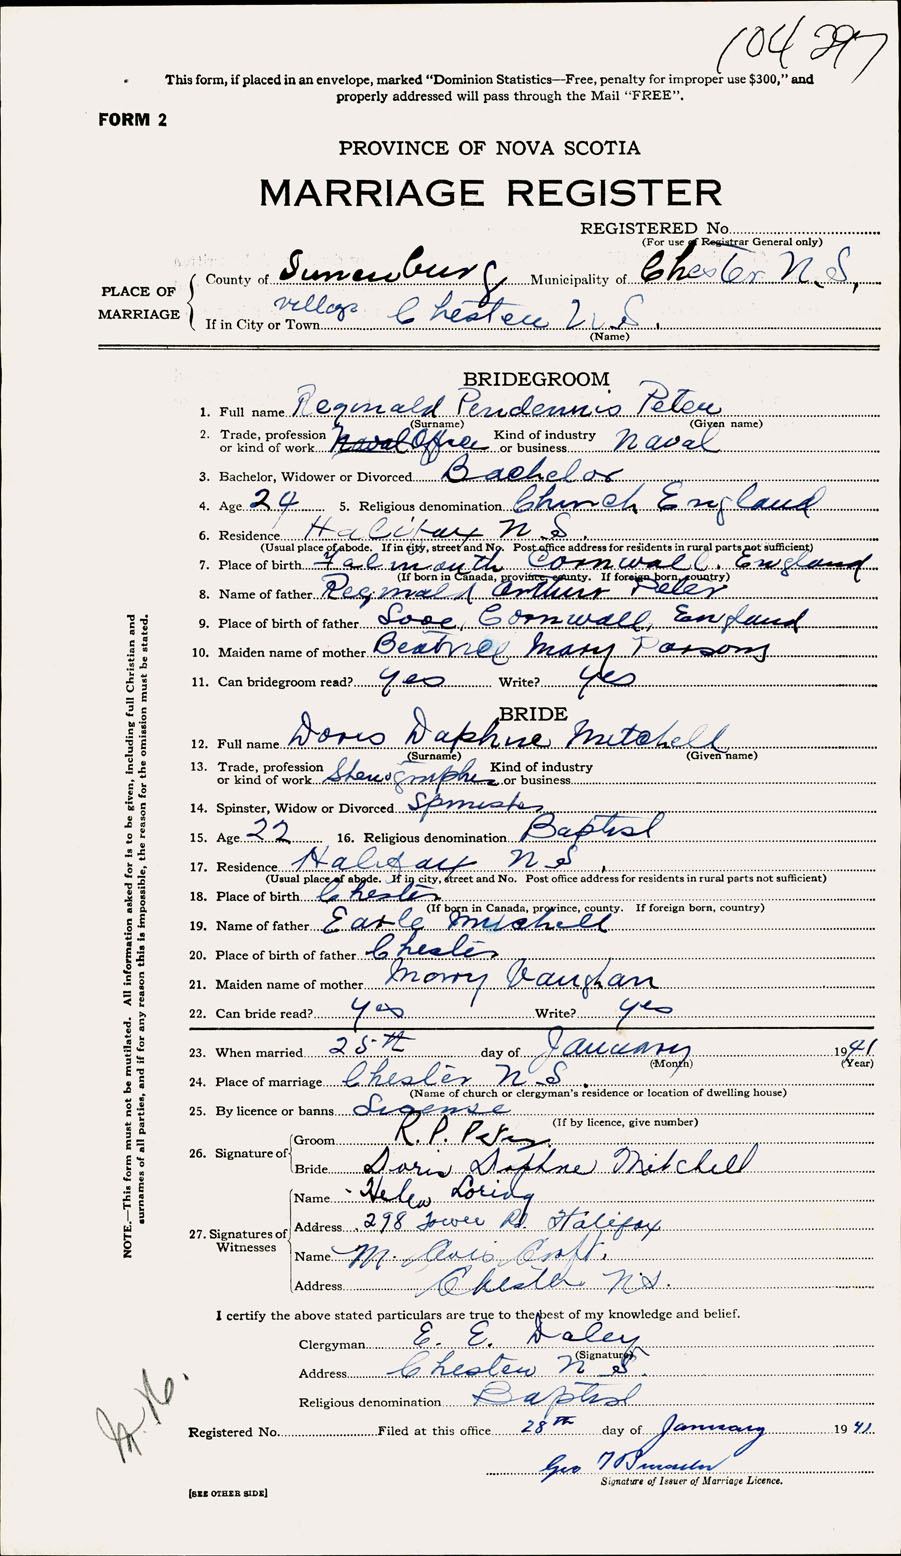 104297
This form, if placed in an envelope, marked “Dominion Statistics—Free, penalty for improper use $300,” and
properly addressed will pass through the Mail “FREE”.
FORM 2
PROVINCE OF NOVA SCOTIA
MARRIAGE REGISTER
REGISTERED No.
(For use of Registrar General only)
PLACE OF MARRIAGE
County of Lunenburg Municipality of Chester N.S.
village
If in City or Town Chester N.S.
(Name)
BRIDEGROOM
1. Full name Reginald Pendennis Peter
(Surname) (Given name)
2. Trade, profession or kind of work Naval Office Kind of industry or business Naval
3. Bachelor, Widower or Divorced Bachelor
4. Age 24 5. Religious denomination Church England
6. Residence Halifax N S.
(Usual place of abode. If in city, street and No. Post office address for residents in rural parts not sufficient)
7. Place of birth Falmouth Cornwall. England
(If born in Canada, province, county. If foreign born, country)
8. Name of father Reginald Arthur Peter
9. Place of birth of father Looe, Cornwall, England
10. Maiden name of mother Beatrice Mary Parsons
11. Can bridegroom read? yes Write? yes
BRIDE
12. Full name Doris Daphne Mitchell
(Surname) (Given name)
13. Trade, profession or kind of work Stenographer Kind of industry or business
14. Spinster, Widow or Divorced Spinster
15. Age 22 16. Religious denomination Baptist
17. Residence Halifax N S.
(Usual place of abode. If in city, street and No. Post office address for residents in rural parts not sufficient)
18. Place of birth Chester
(If born in Canada, province, county. If foreign born, country)
19. Name of father Earle Mitchell
20. Place of birth of father Chester
21. Maiden name of mother Mary Vaughan
22. Can bride read? yes Write? yes
23. When married 25th day of January 1941
(Month) (Year)
24. Place of marriage Chester N S.
(Name of church or clergyman’s residence or location of dwelling house)
25. By licence or banns License
(If by licence, give number)
26. Signature of
Groom R. P. Peter
Bride Doris Daphne Mitchell
27. Signatures of Witnesses
Name Helen Loring
Address 298 Tower Rd. Halifax
Name M. Avis Croft.
Address Chester N.S.
I certify the above stated particulars are true to the best of my knowledge and belief.
Clergyman E. E. Daley
(Signature)
Address Chester N S.
Religious denomination Baptist
Registered No. Filed at this office 28th day of January 1941
Geo
Signature of Issuer of Marriage Licence.
[SEE OTHER SIDE]
NOTE.—This form must not be mutilated. All information asked for is to be given, including full Christian and
surnames of all parties, and if for any reason this is impossible, the reason for the omission must be stated.